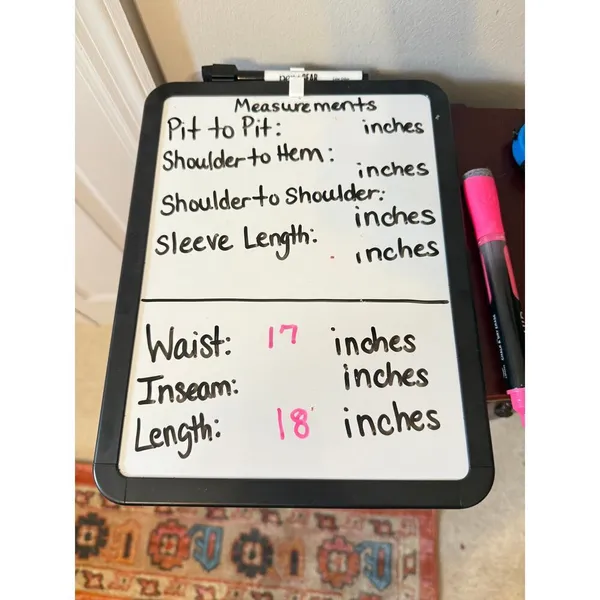 Measurements
Pit to Pit: inches
Shoulder to Hem: inches
Shoulder to Shoulder:
inches
Sleeve Length: inches
Waist: 17 inches
Inseam: inches
Length: 18 inches